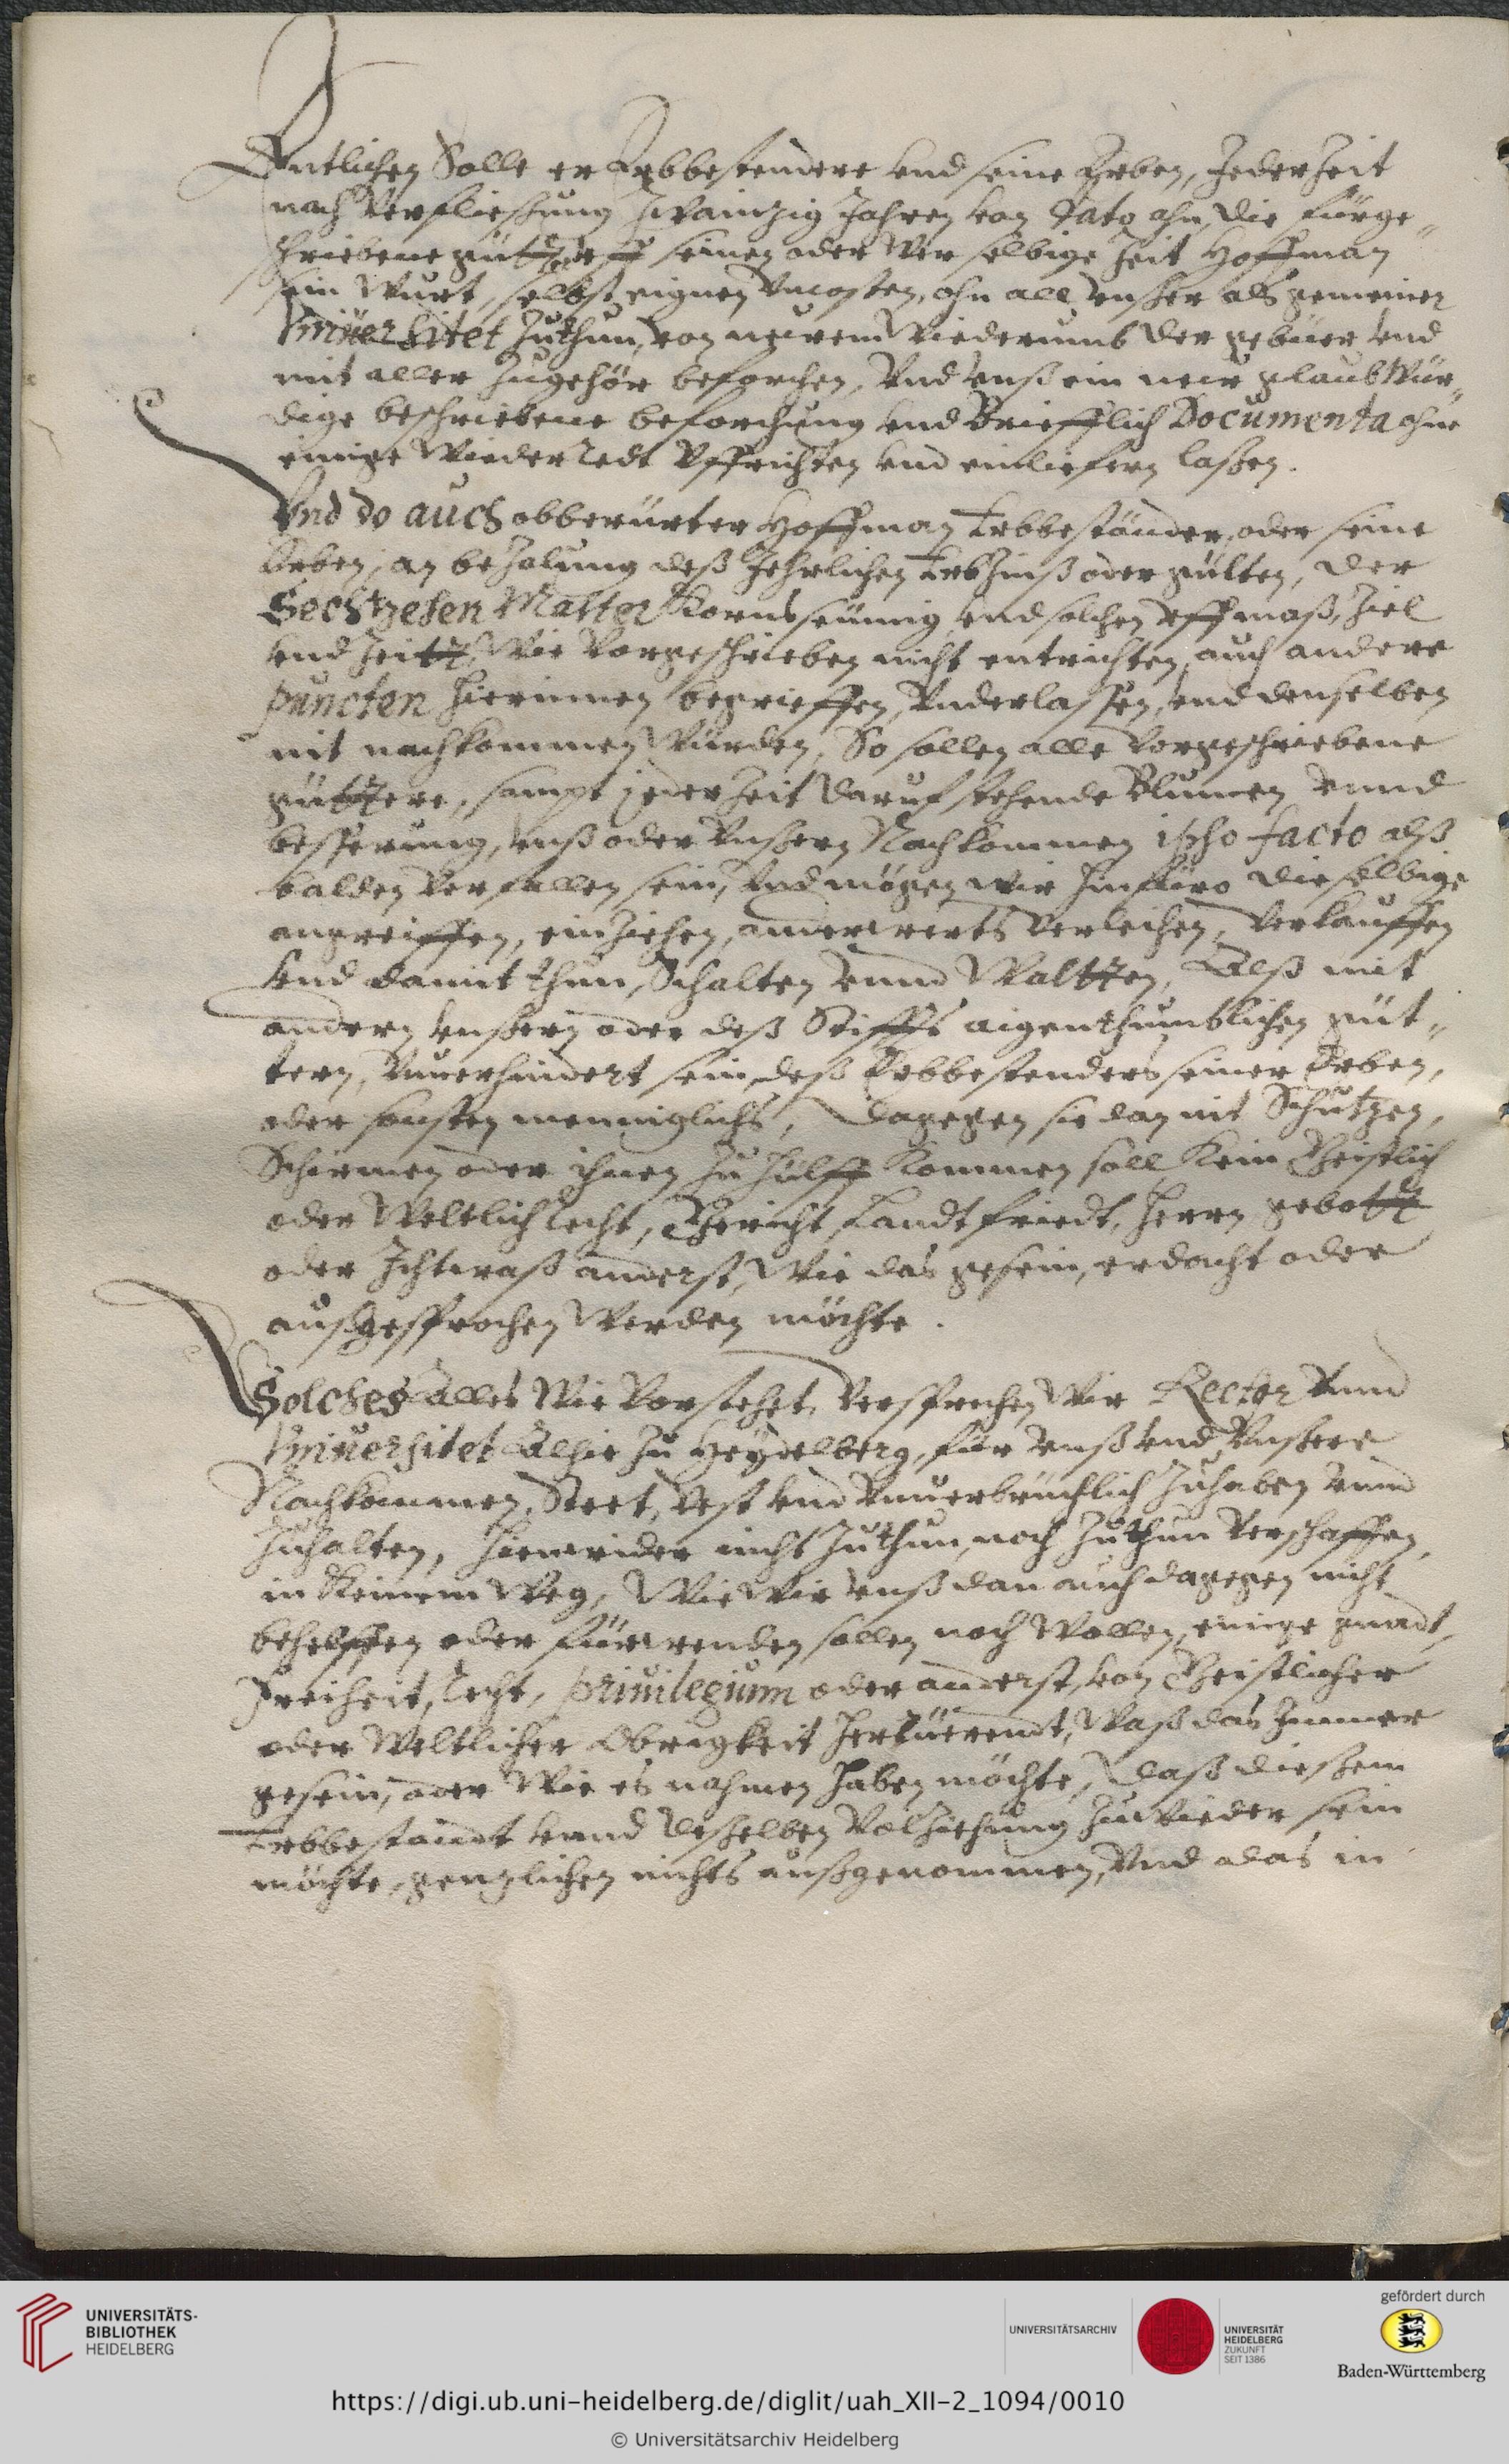 Entlichen Solle er Erbbestendere vnd seine Erben, Jederzeit
nach Verfließung zwaintzig Jahren von dato ahn, die fürge„
schriebene gütter vff seinen oder Wer selbige Zeit Hoffman
sein Würt, selbst eignen Vncosten, ohn all vnser als gemeiner
Vniuersitet Zuthun, von newem Wiederumb der gebüer vnd
mit aller Zugehör beforchen, Vnd vnß ein new glaubwür„
dige beschriebene beforchung vnd Brieffliche Documenta ohne
einige Wiederredt Vffrichten vnd einliefern laßen.
Vnd do auch obberürter Hoffman Erbbeständer, oder seine
Erben, an bezalung deß Jehrlichen Erbzinß oder gülten, der
Sechtzehen Malter Korns seümig, vnd solchen vff maß, Ziel
vnd Zeitt, Wie Vorgeschrieben nicht entrichten, auch andere
puncten hierinnen begrieffen, Vnderlassen, vnd denselben
nit nachkommen Würden, So sollen alle Vorgeschriebene
güttere, sampt jeder Zeit daruf stehende Blumen vnnd
besserung, vnß oder Vnßern Nachkommen ipso facto alß
balden Verfallen sein, Vnd mögen wir hinfüro dieselbige
angreiffen, einziehen, anderwerts Verleihen, Verkauffen
Vnd damit thun, Schalten vnnd Waltten, Alß mit
andern vnßern oder deß Stiffts aigenthumblichen güt„
tern, Vnuerhindert sein, deß Erbbestenders seiner Erben,
oder sonsten menniglichs, dagegen sie dan nit Schutzen,
Schirmen oder ihnen zu hülff Kommen soll Kein Geistlich
oder Weltlich recht, Gericht, Landtfriedt, Herrn gebott
oder Ichtwaß anderst, Wie das gesein, erdacht oder
außgesprochen Werden möchte.
Solches Alles Wie Vorstehet, Versprechen Wir Rector Vnnd
Vniuersitet Alhie zu Heydelberg, für vnß vnd Vnßere
Nachkommen, Steet, Vest vnd Vnuerbrüchlich Zuhaben vnnd
Zuhalten, hierwider nicht Zuthun, noch Zuthun Verschaffen,
in Keinem Weg, Wie Wir vnß dan auch dagegen nicht
behelffen oder fürwenden sollen noch Wollen, einige gnadt,
Freiheit, recht, priuilegium oder anderst, von Geistlicher
oder Weltlicher Obrigkeit herrüerendt, Waß das Immer
gesein, oder Wie es nahmen haben möchte, daß dießem
Erbbestandt vnnd deßelben Volziehung zuwieder sein
möchte, gentzlichen nichts außgenommen, Vnd das in
UNIVERSITÄTS-
BIBLIOTHEK
HEIDELBERG
UNIVERSITÄTSARCHIV
UNIVERSITÄT
HEIDELBERG
ZUKUNFT
SEIT 1386
gefördert durch
Baden-Württemberg
https://digi.ub.uni-heidelberg.de/diglit/uah_XII-2_1094/0010
© Universitätsarchiv Heidelberg